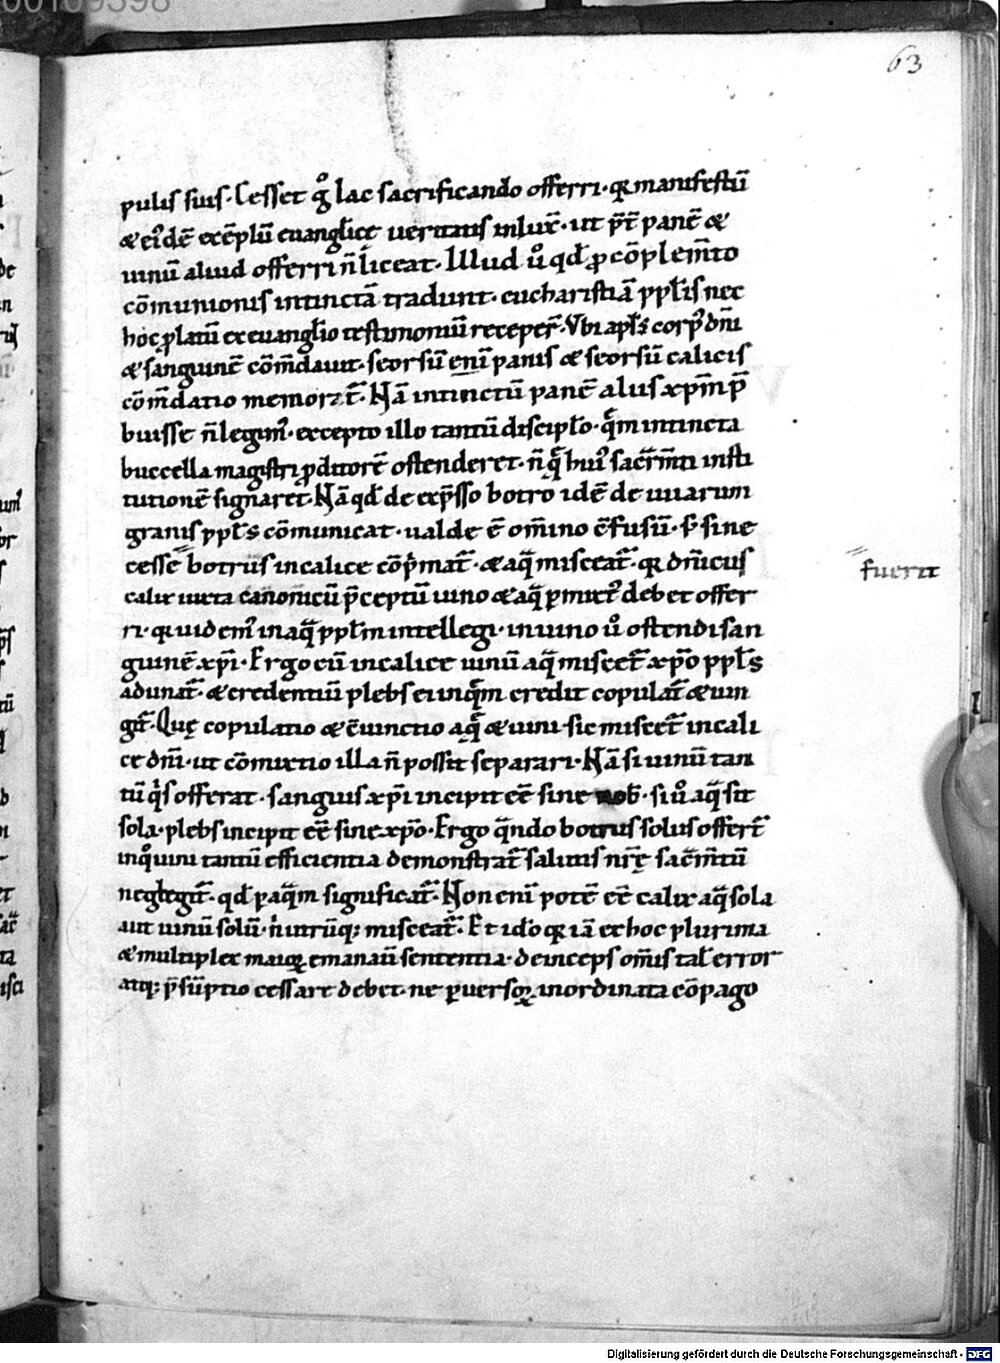 00109398
63
pulis suis. Cesset g̊ lac sacrificando offerri. q̄ manifestū
& euidē exēplū euanglicę ueritatis inluxͭ. ut p̄t̄ panē &
uinū aliud offerri n̄ liceat. Illud ů qd̄ p cōplem̄to
cōmunionis intinctā tradunt. eucharistiā pplis nec
hoc platū ex euanglio testimoniū receper̄. Vbi apls̄ corp᾿ dn̄i
& sanguinē cōm̄dauit. seorsū eni panis & seorsū calicis
cōm̄datio memorat̄. Nā intinctū panē aliis xp̄m p̄
buisse n̄ legim᾿. excepto illo tantū disciplo. quē intincta
buccella magistri pditorē ostenderet. n̄ q̄ hui᾿ sacr̄m̄ti insti
tutionē signaret. Nā qd̄ de exp̄sso botro idē de uuarum
granis ppls̄ cōmunicat. ualde ē om̄ino cōfusū. s̄ sine
cesse botrus in calice cōp̄mat̄. & aq̄ misceat̄. q̄ dn̄icus
fuerit
calix iuxta canonicū p̄ceptū uino & aq̄ pmixt᾿ debet offer
ri. q̄ uidem᾿ in aq̄ pplm intellegi. in uino ů ostendi san
guinē xp̄i. Ergo cū in calice uinū aq̄ miscet̄ xp̄o ppls̄
adunat̄. & credentiū plebs ei in quē credit copulat̄ & iun
git̄. Quę copulatio & c̄iunctio aq̄ & uini. sic miscet̄ in cali
ce dn̄i. ut cōmixtio illa n̄ possit separari. Nā si uinū tan
tū q̄s offerat. sanguis xp̄i incipit eē sine nob̄. si ů aq̄ sit
sola. plebs incipit eē sine xp̄o. Ergo q̄ndo botrus solus offert̄
in q̊ uini tantū efficientia demonstrat̄ salutis nr̄ę sacm̄tū
neglegit̄. qd̄ p aq̄m significat̄. Non eni potē eē calix aq̄ sola
aut uinū solū. n̄ utrūq; misceat̄. Et ido q̄ iā ex hoc plurima
& multiplex maioꝝ emanauit sententia. deinceps om̄is tal̄ error
atq; p̄sūptio cessare debet. ne puersoꝝ inordinata cōpago
Digitalisierung gefördert durch die Deutsche Forschungsgemeinschaft - DFG